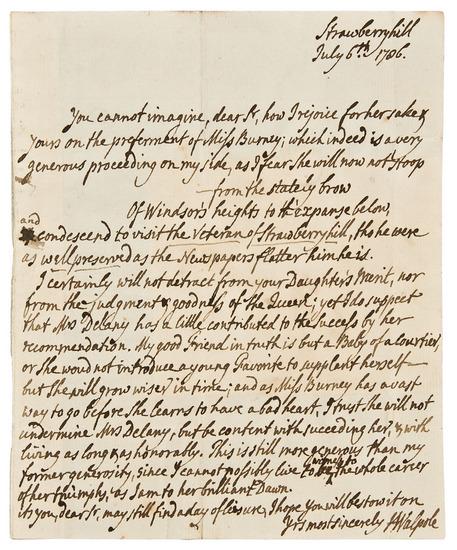 Strawberryhill
July 6th. 1786.
You cannot imagine, dear Sr, how I rejoice for her sake &
yours on the preferment of Miss Burney; which indeed is a very
generous proceeding on my side, as I fear she will now not stoop
from the stately brow
Of Windsor's heights to th' expanse below,
and
condescend to visit the Veteran of Strawberryhill, tho he were
as well preserved as the Newspapers flatter him he is.
I certainly will not detract from your Daughter's Merit, nor
from the judgment & goodness of the Queen; yet I do suspect
that Mrs Delany has a little contributed to the success by her
recommendation. My good Friend in truth is but a Baby of a courtier,
or She woud not introduce a young Favorite to supplant herself—
but She will grow wiser in time; and as Miss Burney has a vast
way to go before she learns to have a bad heart, I trust she will not
undermine Mrs Delany, but be content with succeeding her, & with
living as long & as honorably. This is still more generous than my
former generosity, since I cannot possibly live to be witness to the whole career
of her triumphs, as I am to her brilliant Dawn.
if you, dear Sr, may still find a day of leisure, I hope you will bestow it on
Yrs most sincerely HWalpole